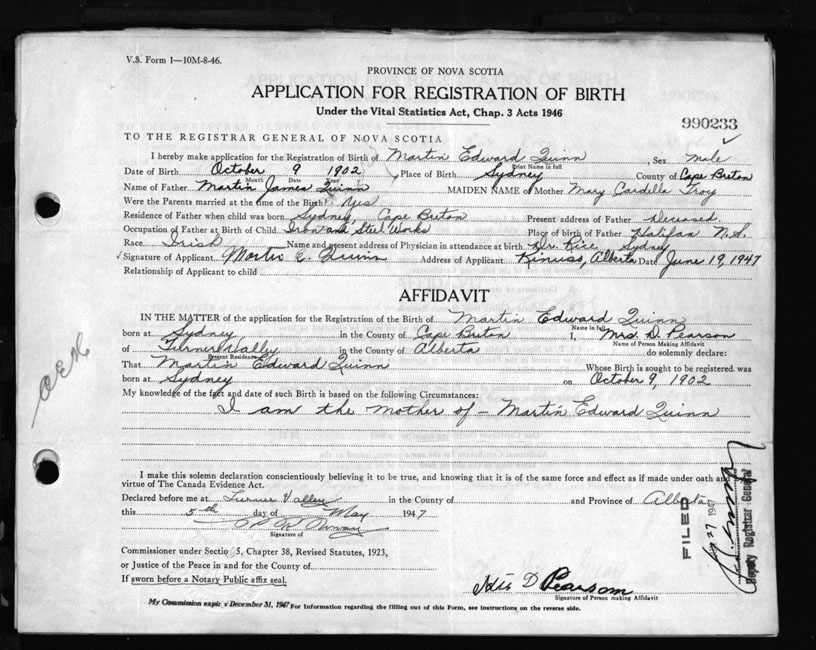 V.S. Form 1—10M-8-46.
PROVINCE OF NOVA SCOTIA
APPLICATION FOR REGISTRATION OF BIRTH
Under the Vital Statistics Act, Chap. 3 Acts 1946
990233
TO THE REGISTRAR GENERAL OF NOVA SCOTIA
I hereby make application for the Registration of Birth of Martin Edward Quinn, Sex male
Print Name in full
Date of Birth October 9 1902, Place of Birth Sydney County of Cape Breton
Month Date Year
Name of Father Martin James Quinn MAIDEN NAME of Mother Mary Cardella Troy
Were the Parents married at the time of the Birth? Yes
Residence of Father when child was born Sydney, Cape Breton Present address of Father Deceased
Occupation of Father at Birth of Child Iron and Steel Works Place of birth of Father Halifax N.S.
Race Irish Name and present address of Physician in attendance at birth Dr. Rice Sydney
Signature of Applicant Martin E. Quinn Address of Applicant Kinuso, Alberta Date June 19, 1947
Relationship of Applicant to child
AFFIDAVIT
IN THE MATTER of the application for the Registration of the Birth of Martin Edward Quinn
Name in full
born at Sydney in the County of Cape Breton I, Mrs. D. Pearson
Name of Person Making Affidavit
of Turner Valley in the County of Alberta do solemnly declare:
Present Residence
That Martin Edward Quinn Whose Birth is sought to be registered was
born at Sydney on October 9, 1902
My knowledge of the fact and date of such Birth is based on the following Circumstances:
I am the mother of - Martin Edward Quinn
I make this solemn declaration conscientiously believing it to be true, and knowing that it is of the same force and effect as if made under oath and by
virtue of The Canada Evidence Act.
Declared before me at Turner Valley in the County of and Province of Alberta
this 5th day of May 1947
Signature of
Commissioner under Section 5, Chapter 38, Revised Statutes, 1923,
or Justice of the Peace in and for the County of
If sworn before a Notary Public affix seal.
D Pearson
Signature of Person making Affidavit
My Commission expires December 31, 1947
For Information regarding the filling out of this Form, see instructions on the reverse side.
FILED
27 1947
Deputy Registrar General